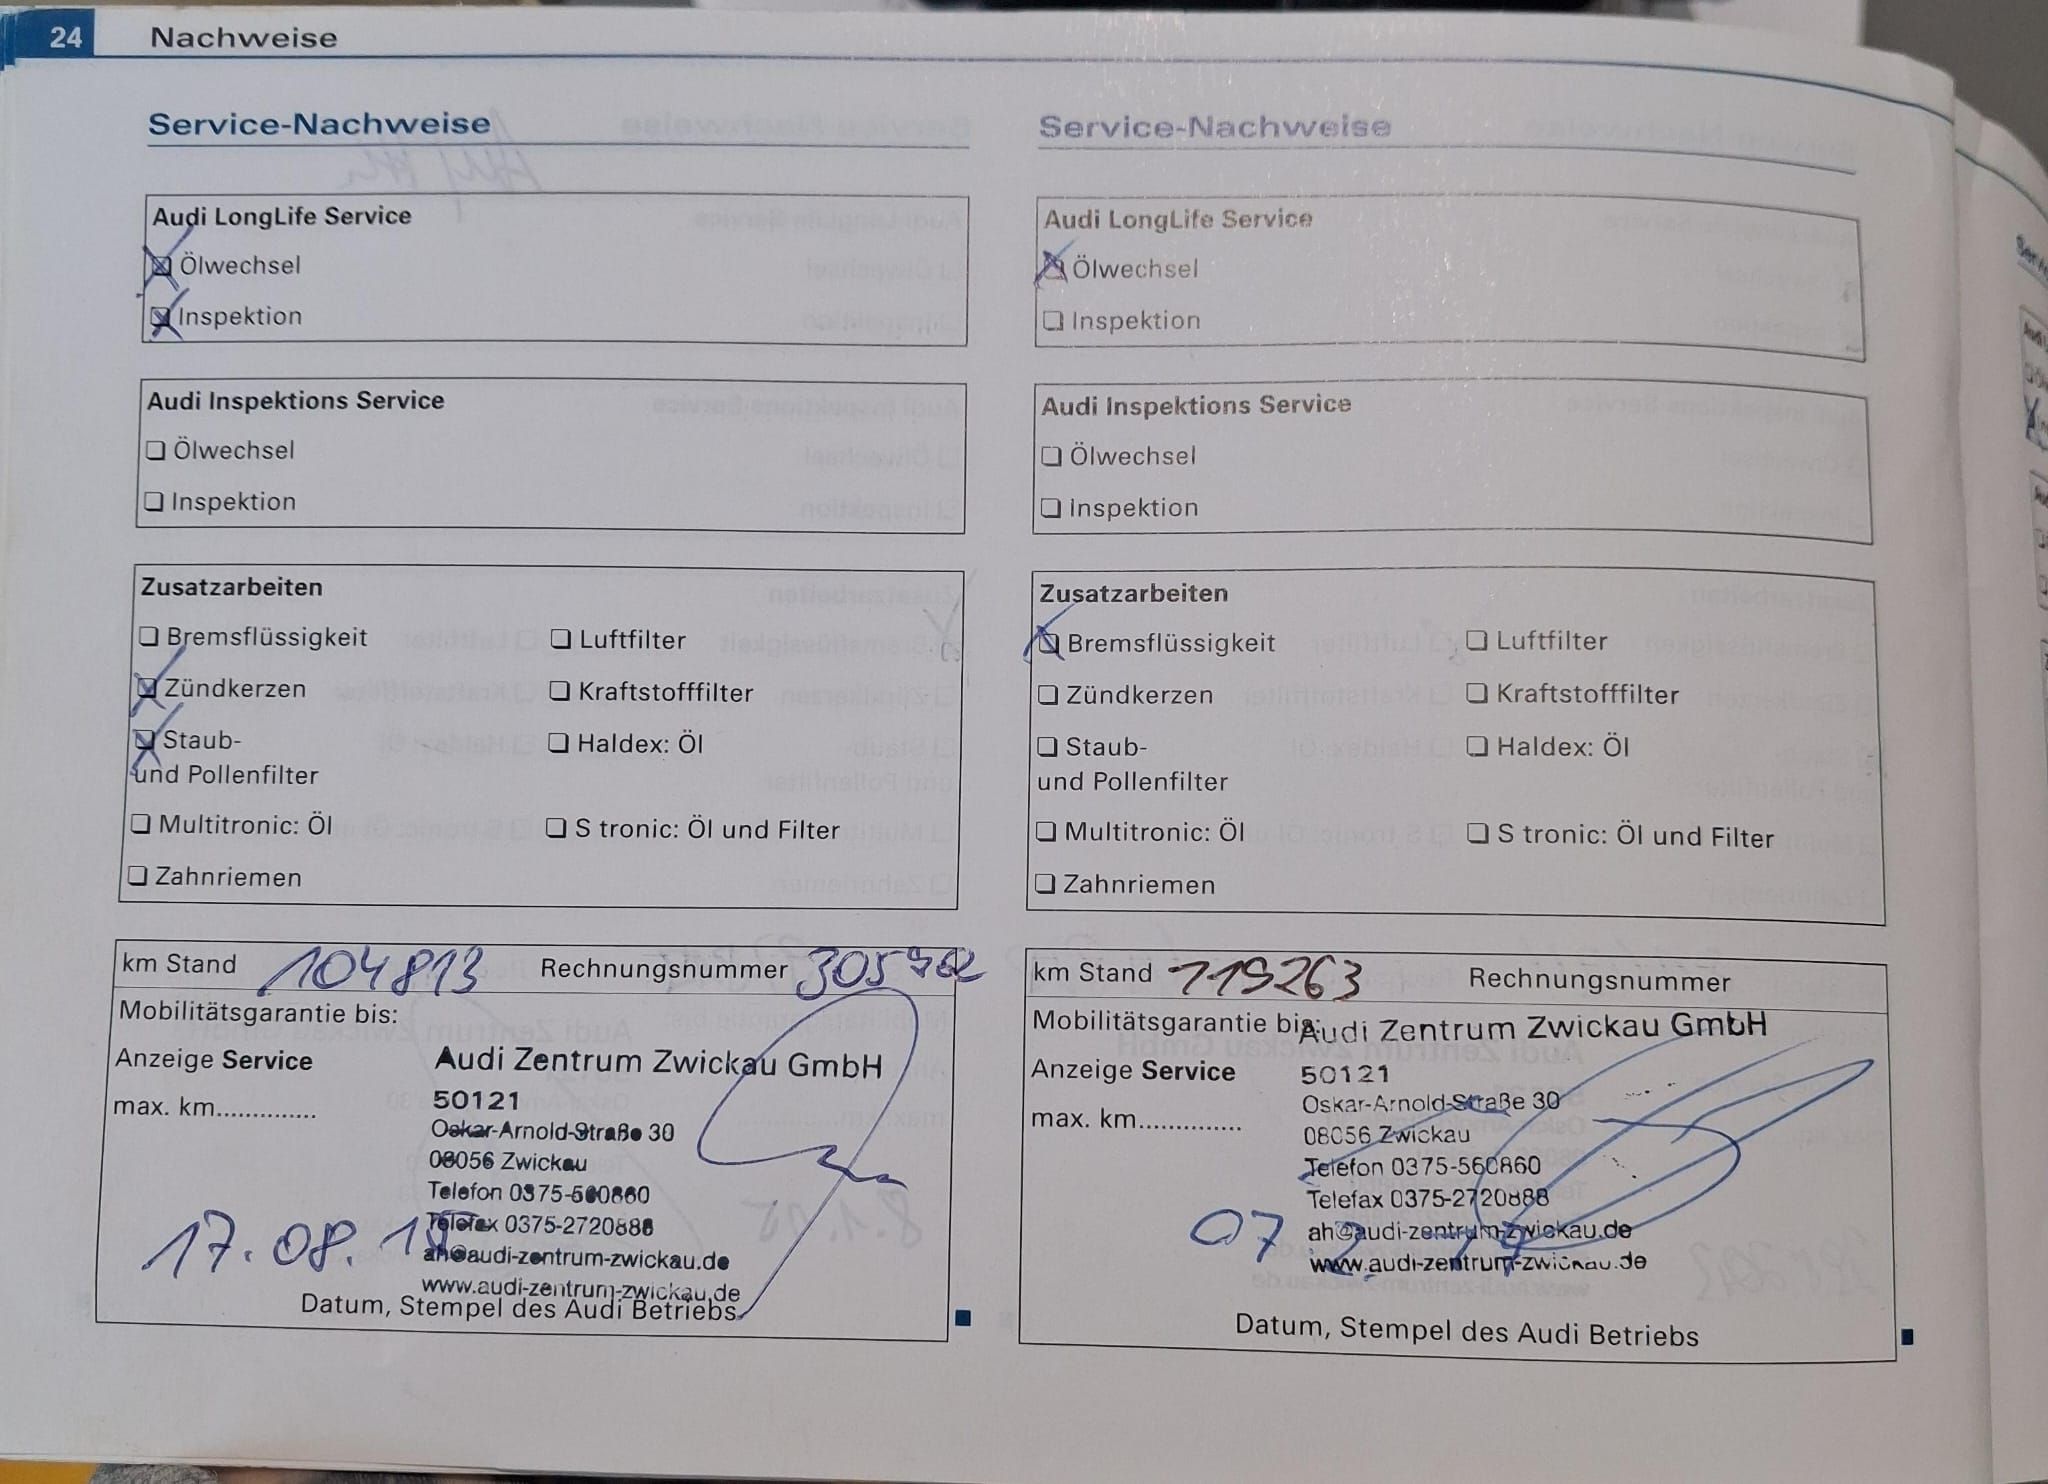 24 Nachweise
Service-Nachweise
Audi LongLife Service
Ölwechsel
Inspektion
Audi Inspektions Service
Ölwechsel
Inspektion
Zusatzarbeiten
Bremsflüssigkeit
Luftfilter
Zündkerzen
Kraftstofffilter
Staub-
und Pollenfilter
Haldex: Öl
Multitronic: Öl
S tronic: Öl und Filter
Zahnriemen
km Stand 104813 Rechnungsnummer
Mobilitätsgarantie bis:
Anzeige Service
max. km..............
Audi Zentrum Zwickau GmbH
50121
Oskar-Arnold-Straße 30
08056 Zwickau
Telefon 0375-560860
Telefax 0375-2720888
ah@audi-zentrum-zwickau.de
www.audi-zentrum-zwickau.de
17.08.
Datum, Stempel des Audi Betriebs
Service-Nachweise
Audi LongLife Service
Ölwechsel
Inspektion
Audi Inspektions Service
Ölwechsel
Inspektion
Zusatzarbeiten
Bremsflüssigkeit
Luftfilter
Zündkerzen
Kraftstofffilter
Staub-
und Pollenfilter
Haldex: Öl
Multitronic: Öl
S tronic: Öl und Filter
Zahnriemen
km Stand 119263 Rechnungsnummer
Mobilitätsgarantie bis:
Anzeige Service
max. km..............
Audi Zentrum Zwickau GmbH
50121
Oskar-Arnold-Straße 30
08056 Zwickau
Telefon 0375-560860
Telefax 0375-2720888
ah@audi-zentrum-zwickau.de
www.audi-zentrum-zwickau.de
07
Datum, Stempel des Audi Betriebs